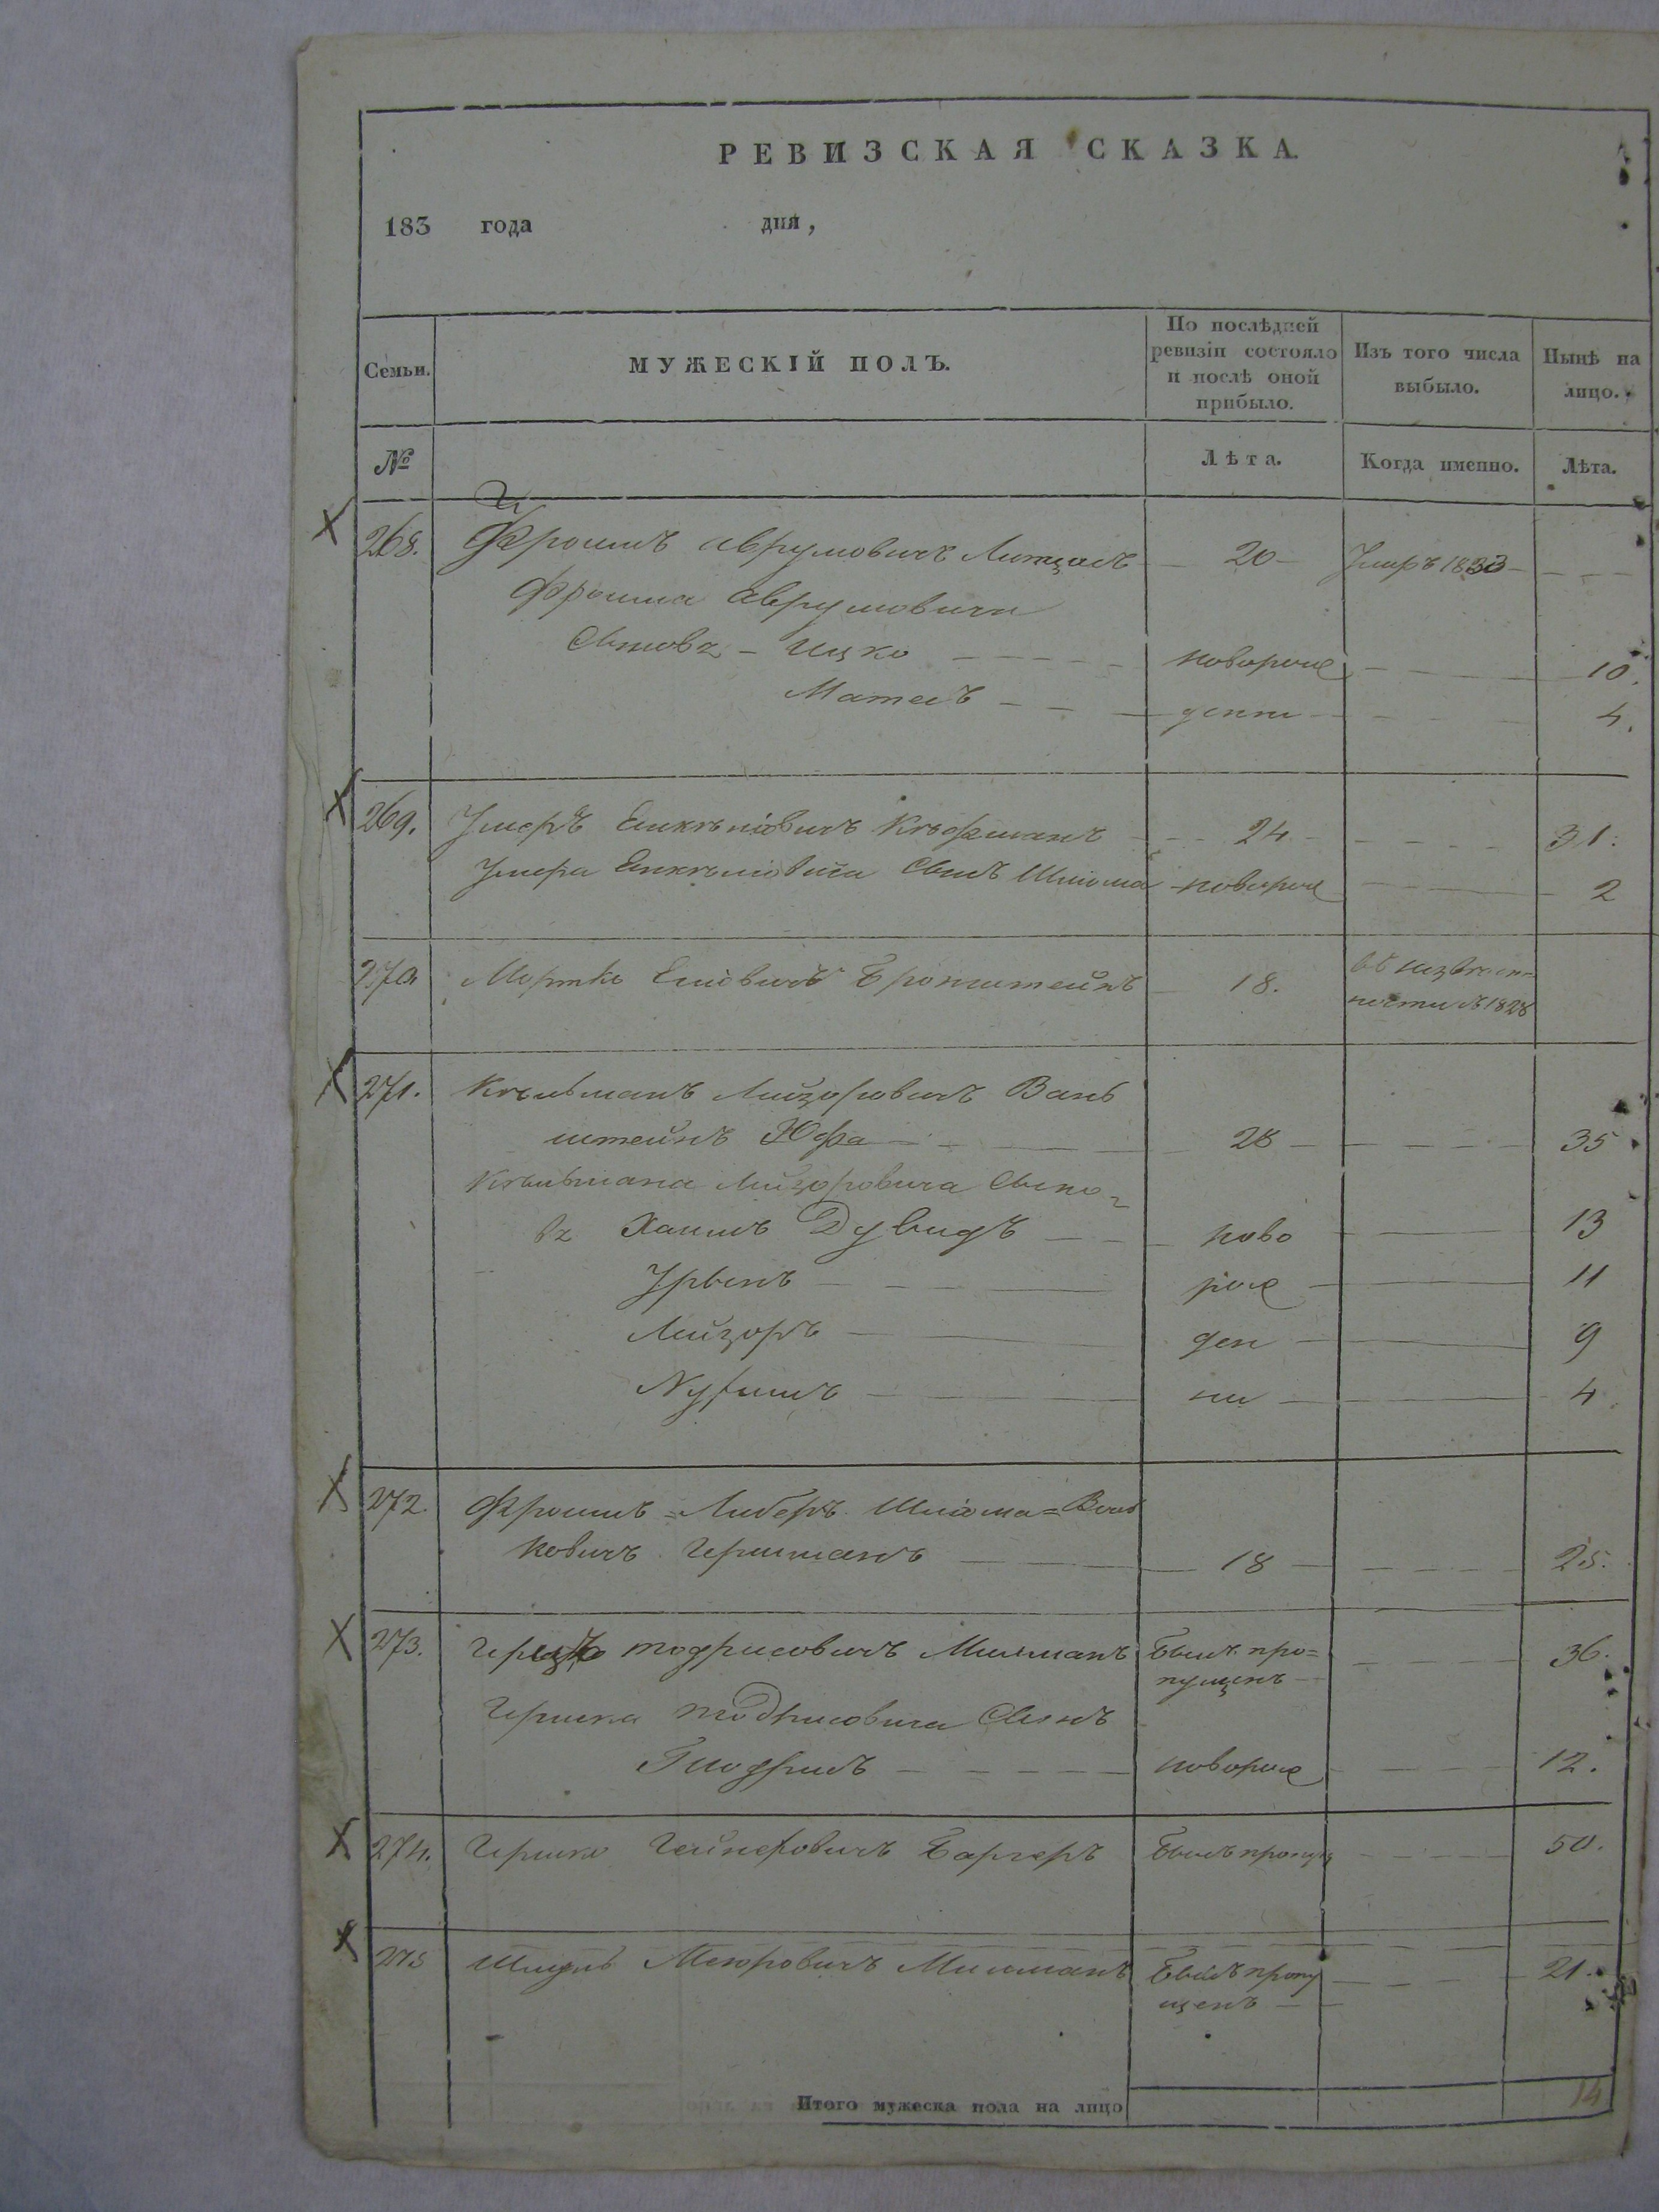 РЕВИЗСКАЯ СКАЗКА.
183 года дня,
Семьи. МУЖЕСКІЙ ПОЛЪ. По послѣдней ревизіи состояло и послѣ оной прибыло. Изъ того числа выбыло. Нынѣ на лицо.
№ Лѣта. Когда именно. Лѣта.
268. Фроимъ Аврумовичъ 20 Умеръ 1833
Фроима Аврумовича
Сыновья Ицко новорож 10.
Мотель денни 4.
269. 24 31.
Сынъ Шліома новорож 2
270 Мортко Бронштейнъ 18. въ неизвѣст-
ности съ 1828
271. Кельманъ Лейзоровичъ Вань
штейнъ Юфа 28 35
Кельмана Лейзоровича Сыно-
вя Хаимъ Дувидъ ново 13
рож 11
Лейзоръ ден 9
Нухимъ ни 4
272. Фроимъ=Либеръ Шліома=Воль
ковичъ Гершманъ 18 25.
273. Тодрисовичъ Мильманъ Былъ про= 36.
пущенъ
Гершка Тодрисовича Сынъ
новорож 12.
274. Гершко Бергеръ Былъ пропущ 50.
275 Шмуль Меюровичъ Мильманъ Былъ пропу 21.
щенъ
Итого мужеска пола на лицо 14